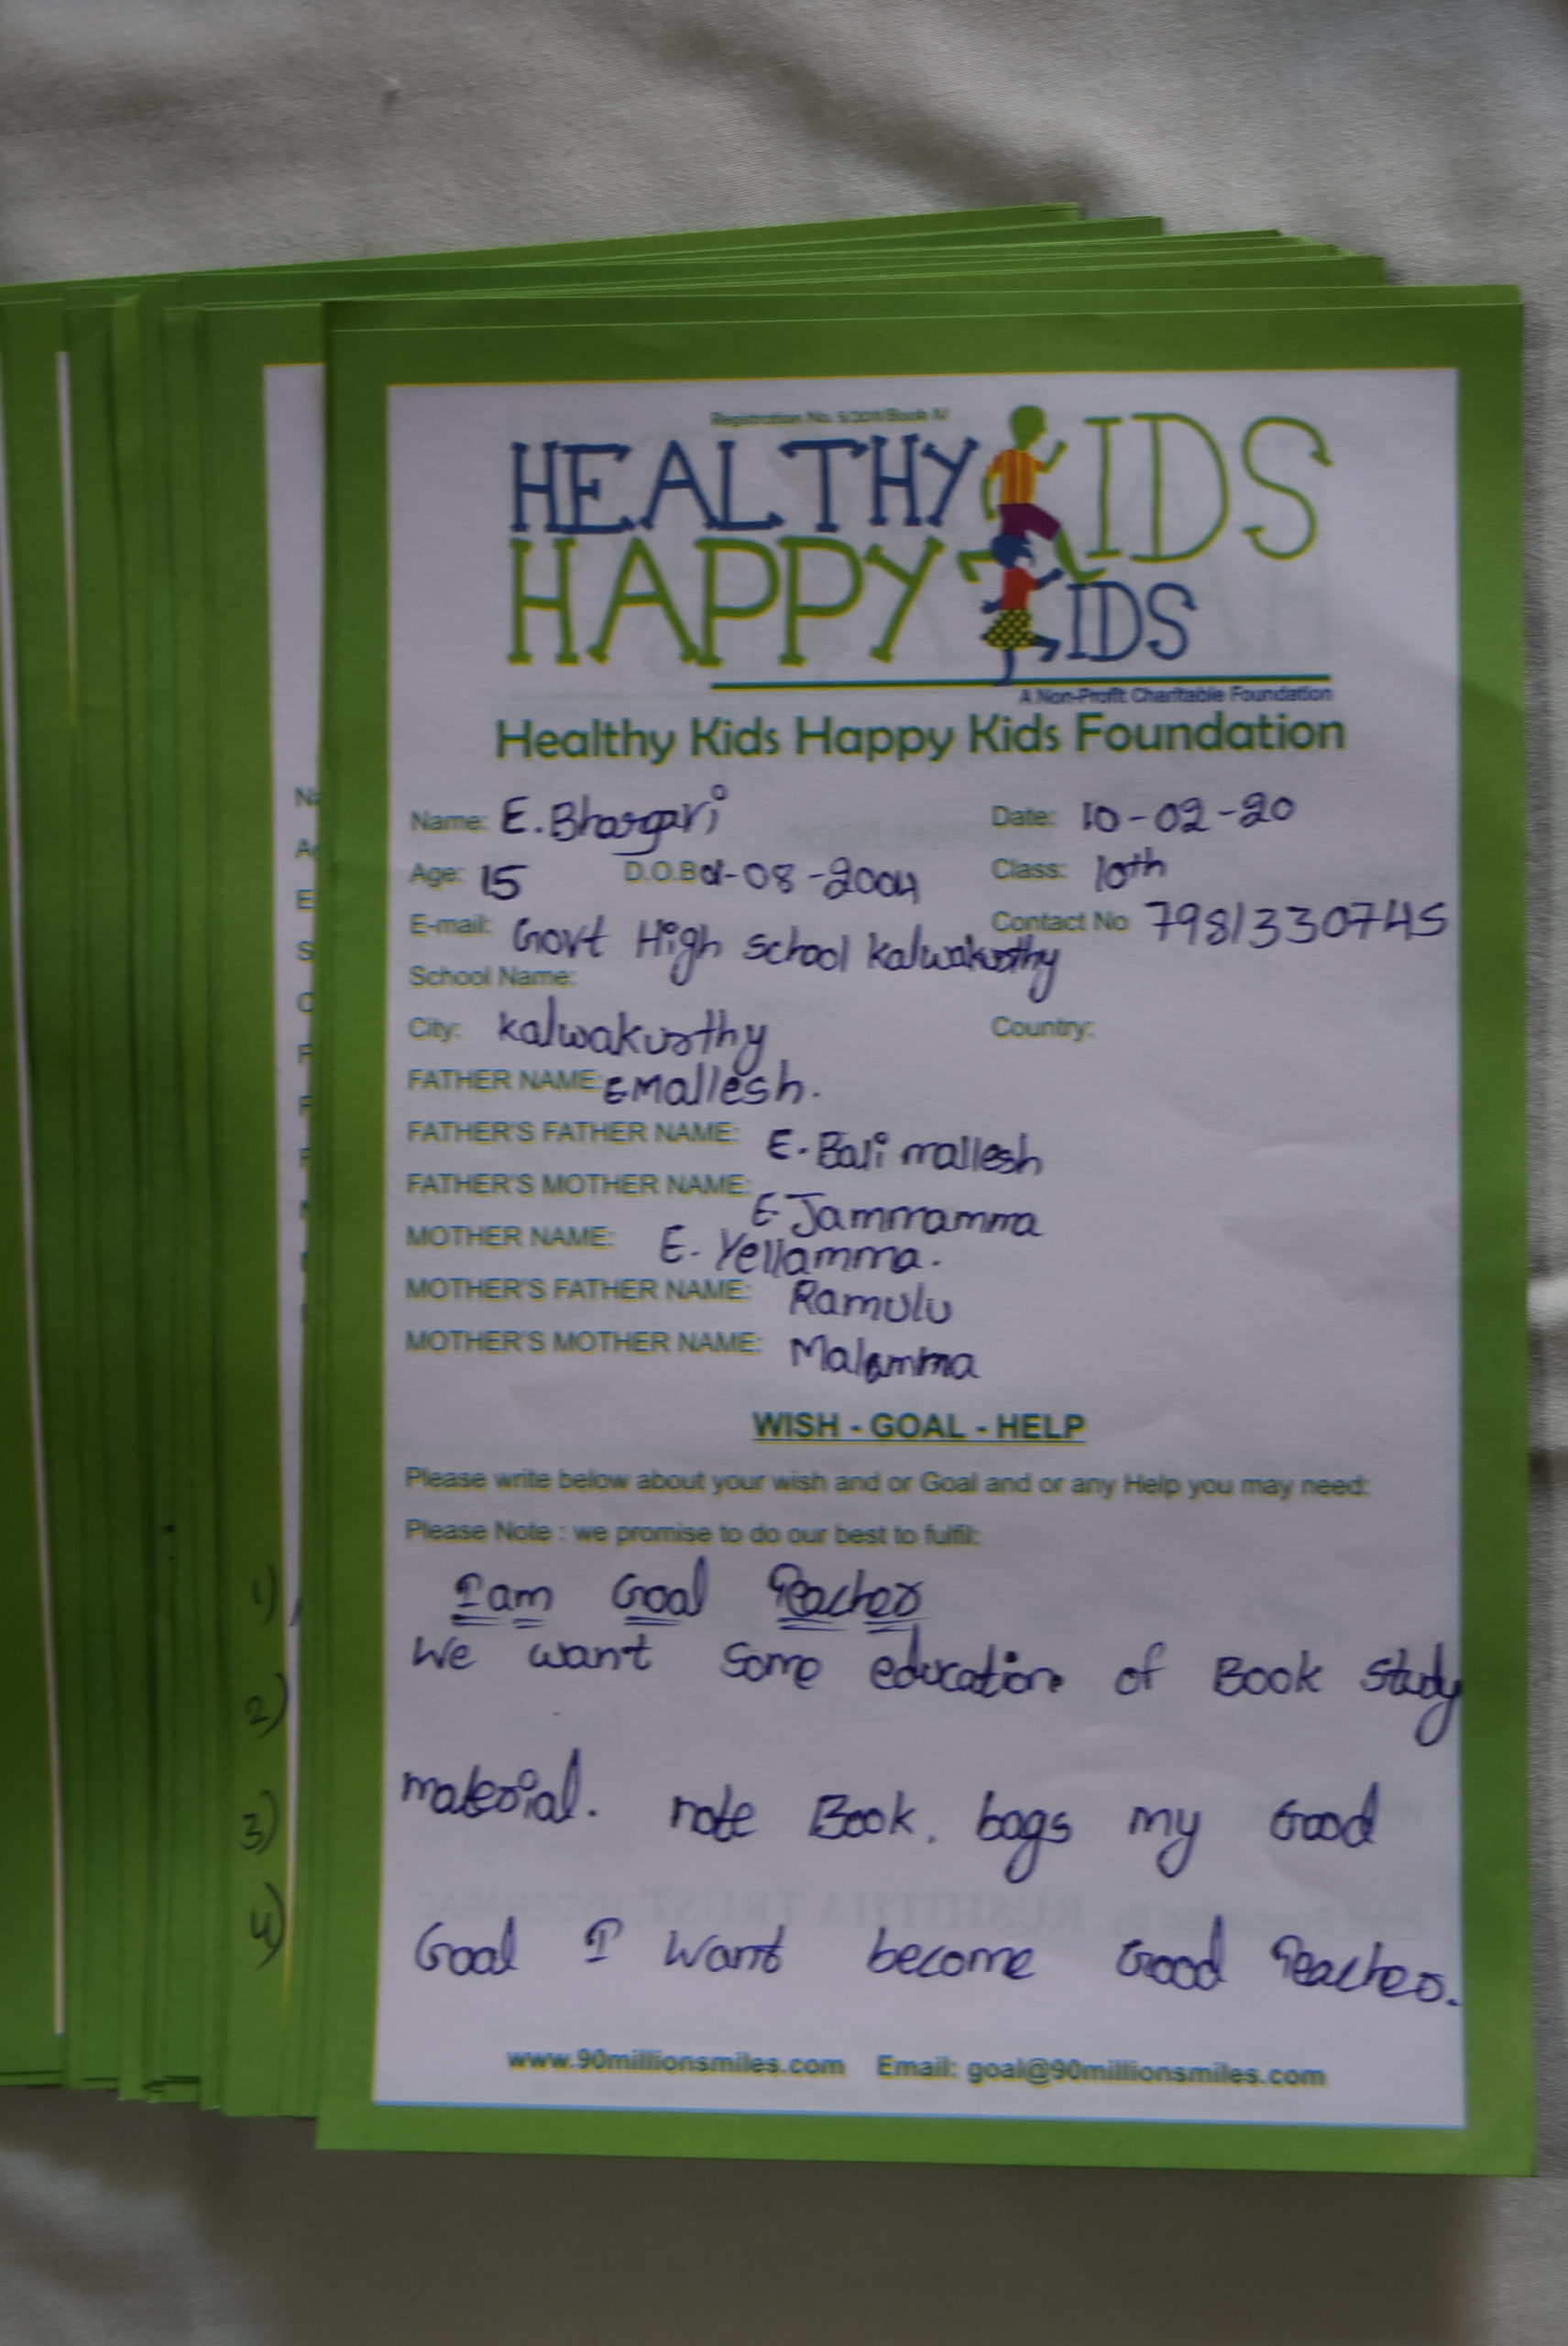 Registration No. 5/2011 Book IV
HEALTHY KIDS
HAPPY KIDS
A Non-Profit Charitable Foundation
Healthy Kids Happy Kids Foundation
Name: E. Bhargavi Date: 10-02-20
Age: 15 D.O.B 01-08-2004 Class: 10th
E-mail: Contact No 7981330745
School Name: Govt High school kalwakurthy
City: kalwakurthy Country:
FATHER NAME: E Mallesh.
FATHER'S FATHER NAME: E. Bali mallesh
FATHER'S MOTHER NAME: E Jammamma
MOTHER NAME: E. Yellamma.
MOTHER'S FATHER NAME: Ramulu
MOTHER'S MOTHER NAME: Malamma
WISH - GOAL - HELP
Please write below about your wish and or Goal and or any Help you may need:
Please Note : we promise to do our best to fulfil:
I am Goal Teacher
We want some education of Book study
material. note Book. bags my Good
Goal I want become Good Teacher.
www.90millionsmiles.com Email: goal@90millionsmiles.com
1)
2)
3)
4)